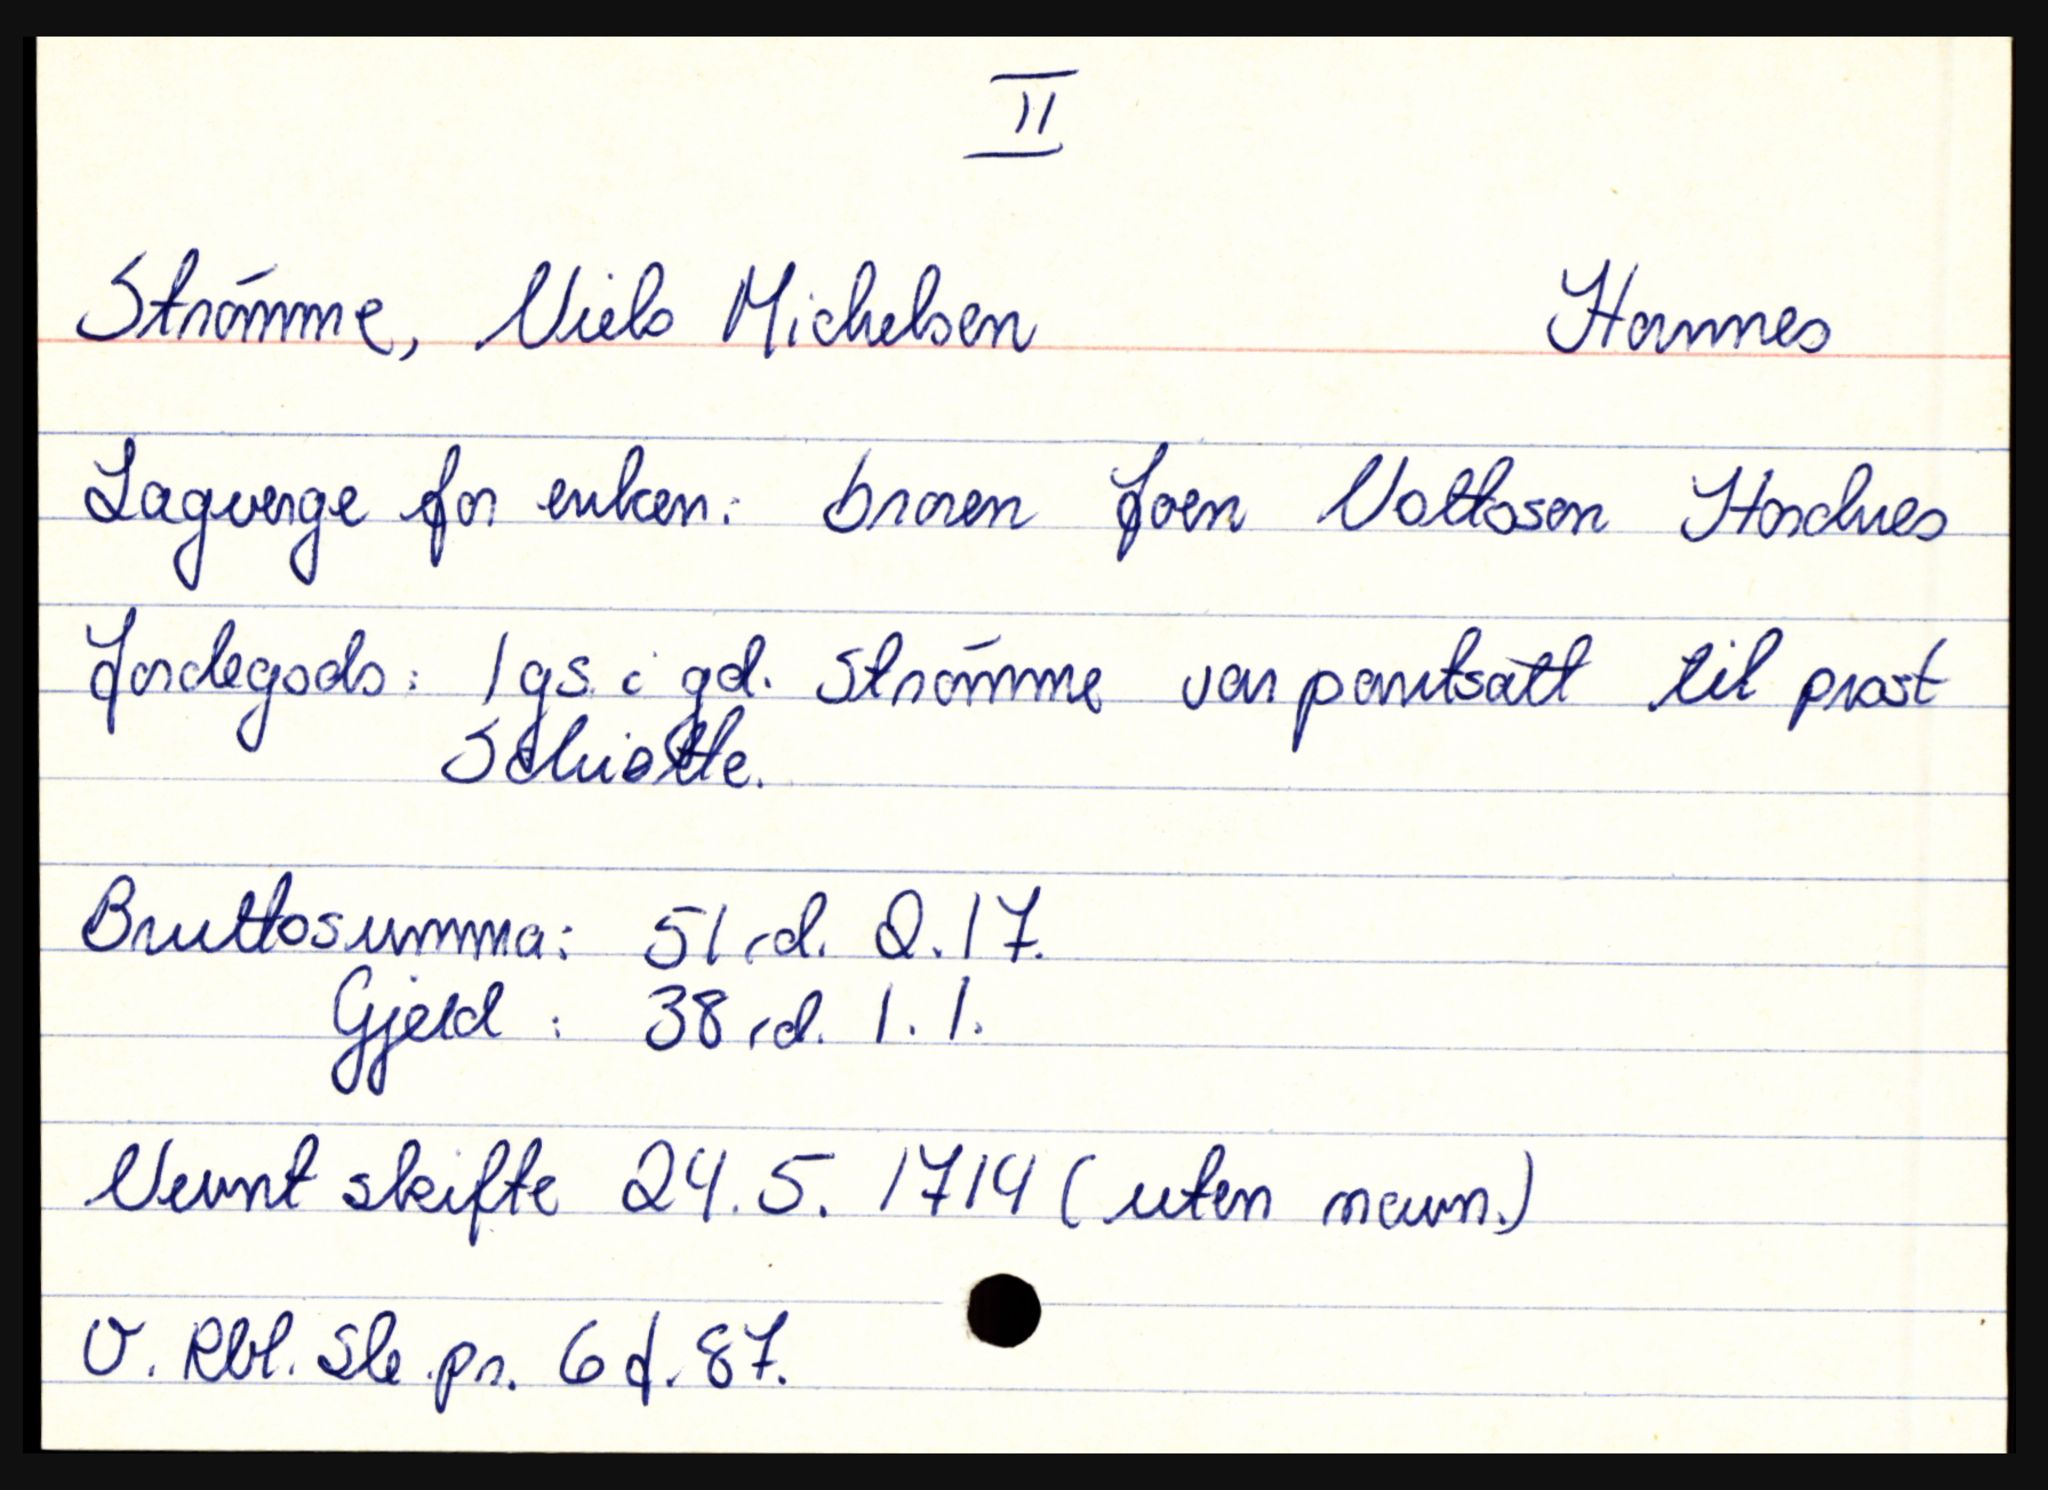 II
Strømme, Niels Michelsen Hornnes
Lagverge for enken: broren Joen Nottosen Hordnes
Jordegods: 1 gs. i gd. Strømme var pantsatt til prost
Schiøtte.
Bruttosumma: 51 rd. 2. 17.
Gjeld : 38 rd. 1. 1.
Nevnt skifte 24. 5. 1714 (uten navn.)
V. Rbl. Sk. pr. 6 f. 87.